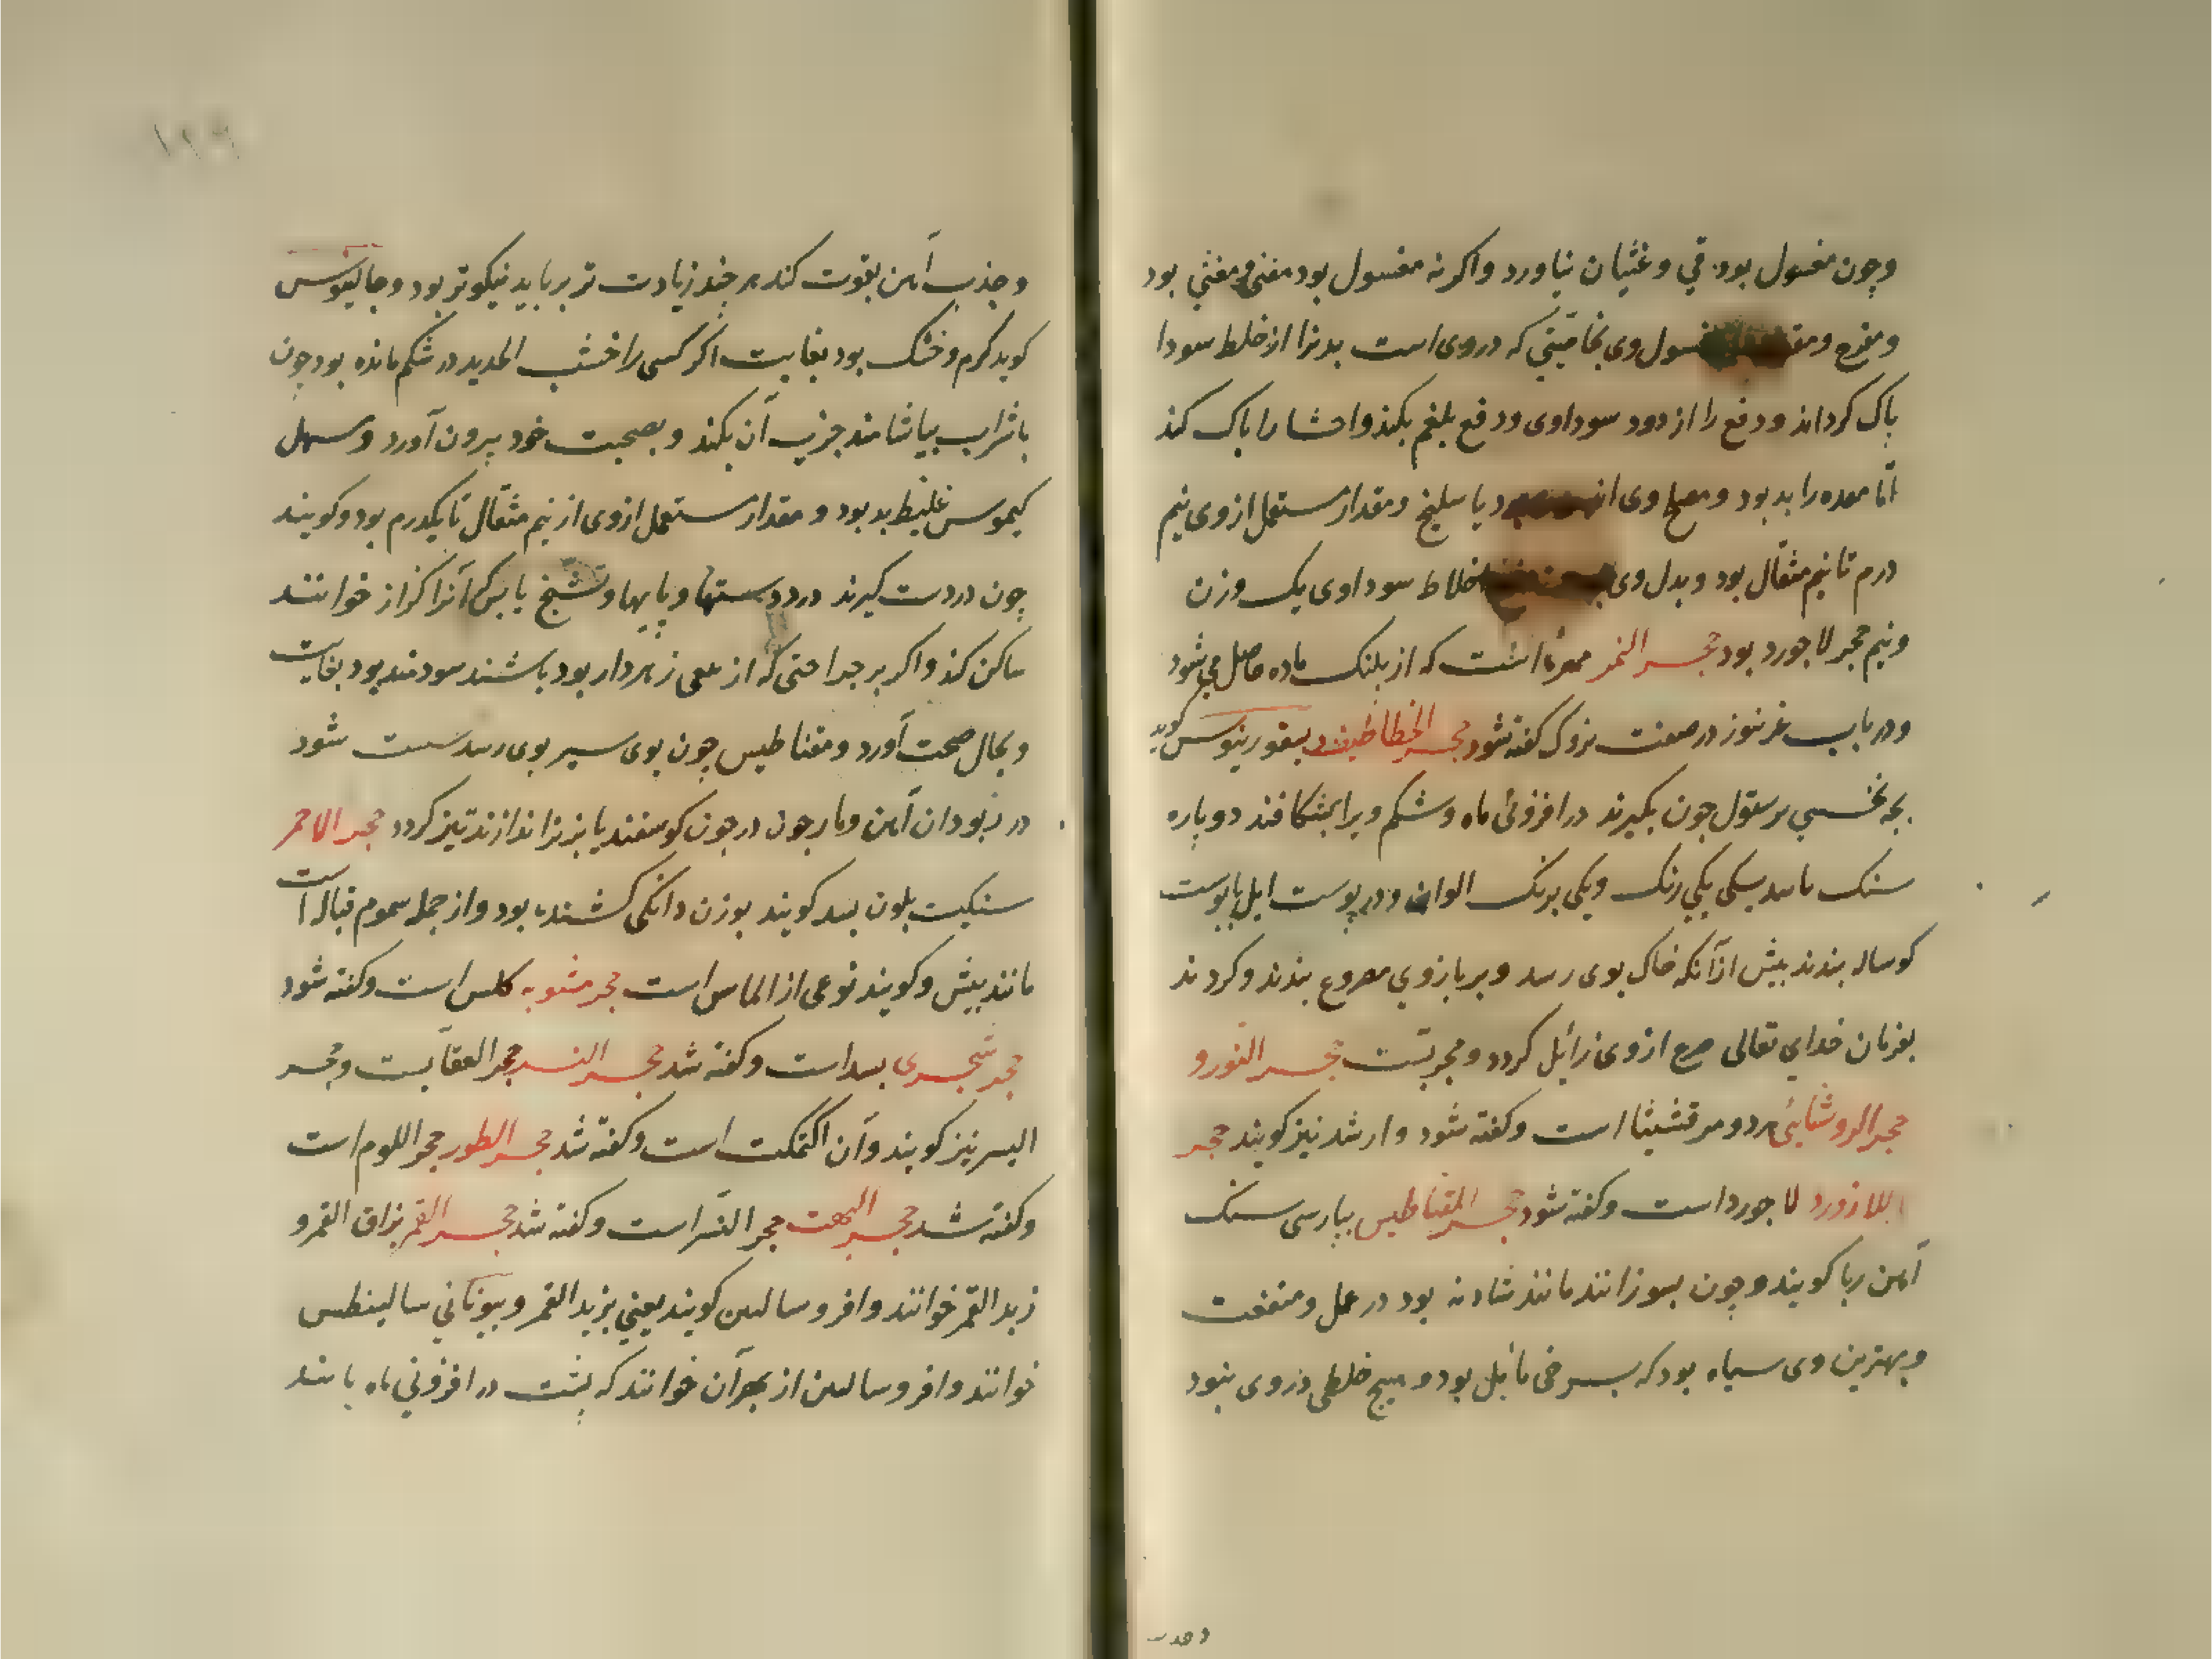 وچون مغسول بود قی و غثیان نیاورد واکر نه مغسول بود مغنی و مغثی بود
ومفرح ومقـ ـسول وی بخاصیتی که در وی است بدنرا از خلط سودا
پاک کرداند ودفع را از درد سوداوی ودفع بلغم بکند واحشا را پاک کند
اما معده را بد بود ومصلح وی یا سلیخ ومقدار مستعمل از وی نیم
درم تا نیم مثقال بود وبدل وی اخلاط سوداوی یک وزن
ونیم حجر لاجورد بود حجر النمر مهره است که از پلنک ماده حاصل می شود
ودر باب در صفت کفته شود حجر الخطاطیف دیسقوریدوس کوید
بچه نخستین پرستوک چون بکیرند در افزونی ماه وشکم ویرا بشکافند دو پاره
سنک یابند یکی یکی رنک ویکی برنک الوان ودر پوست ایل یا پوست
کوساله بندند پیش از آنکه خاک بوی رسد وبر بازوی مصروع بندند وکردند
بفرمان خدای تعالی صرع از وی زائل کردد ومجربست حجر النور و
حجر الروشنایی هر دو مرقشیثا است وکفته شود وارشد نیز کویند حجر
اللازورد لاجورد است وکفته شود حجر المقناطیس بپارسی سنک
آهن ربا کویند وچون بسوزانند مانند شادنه بود در عمل ومنفعت
وبهترین وی سیاه بود که بسرخی مایل بود وهیچ خلطی در وی نبود
وجذب
۱۲۶
وجذب آهن بقوت کند هر چند زیادت تر برباید نیکوتر بود وجالینوس
کوید کرم وخشک بود بغایت اکر کسی را خبث الحدید در شکم مانده بود چون
با شراب بیاشامند جذب آن بکند وبصحبت خود بیرون آورد ومسهل
کیموس غلیظ بد بود ومقدار مستعمل از وی از نیم مثقال تا یکدرم بود وکویند
چون در دست کیرند درد دستها وپایها وتشنج یابس که آنرا کزاز خوانند
ساکن کند واکر بر جراحتی که از زهردار بود پاشند سودمند بود بغایت
وبحال صحت آورد ومقناطیس چون بوی سیر بوی رسد سست شود
در ربودن آهن وباز چون در خون کوسفند یا بز نر اندازند تیز کردد حجر الاحمر
سنکیست بلون بسد کویند بوزن دانکی کشنده بود واز جمله سموم قتاله است
مانند بیش وکویند نوعی از الماس است حجر مشوبه کلس است وکفته شود
حجر شجری بسد است وکفته شد حجر النسر حجر العقابست وحجر
الیسر نیز کویند وآن اکتمکت است وکفته شد حجر الطور حجر اللوم است
وکفته شد حجر البهت حجر النسر است وکفته شد حجر القمر بزاق القمر و
زبد القمر خوانند وافروسالین کویند یعنی بزبد القمر وبیونانی سالینطس
خوانند وافروسالین از بهر آن خوانند که بشب در افزونی ماه یابند